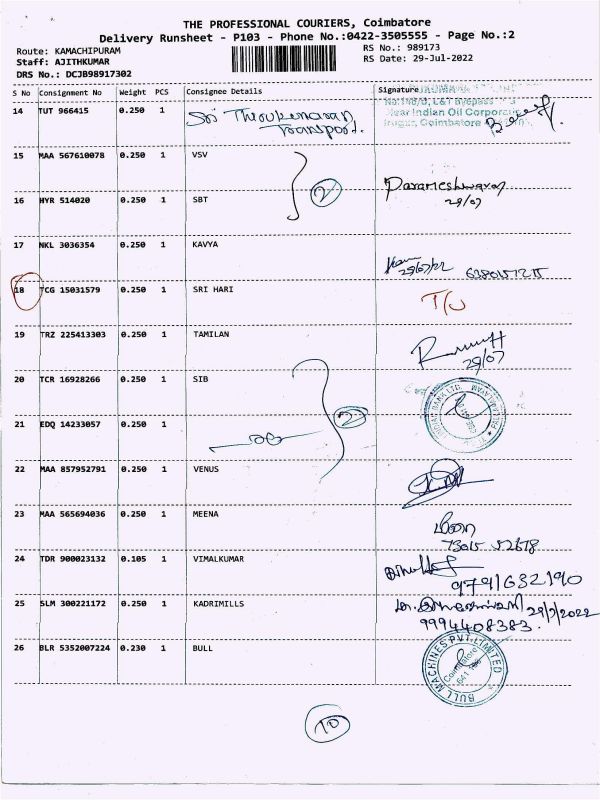 THE PROFESSIONAL COURIERS, Coimbatore
Delivery Runsheet - P103 - Phone No.:0422-3505555 - Page No.:2
Route: KAMACHIPURAM RS No.: 989173
Staff: AJITHKUMAR RS Date: 29-Jul-2022
DRS No.: DCJB98917302
S No Consignment No Weight PCS Consignee Details Signature
14 TUT 966415 0.250 1 Sri Thirukumaran Transport.
Near Indian Oil Corporat
Coimbatore
15 MAA 567610078 0.250 1 VSV
2 Parameshwaran
29/07
16 HYR 514020 0.250 1 SBT
17 NKL 3036354 0.250 1 KAVYA
29/07/22
18 TCG 15031579 0.250 1 SRI HARI T/U
19 TRZ 225413303 0.250 1 TAMILAN
29/07
20 TCR 16928266 0.250 1 SIB
2
21 EDQ 14233057 0.250 1
22 MAA 857952791 0.250 1 VENUS
23 MAA 565694036 0.250 1 MEENA மீனா
73015 52678
24 TDR 900023132 0.105 1 VIMALKUMAR
9791632190
25 SLM 300221172 0.250 1 KADRIMILLS 29/7/2022
9994408383.
26 BLR 5352007224 0.230 1 BULL
BULL MACHINES PVT. LIMITED
Coimbatore
10